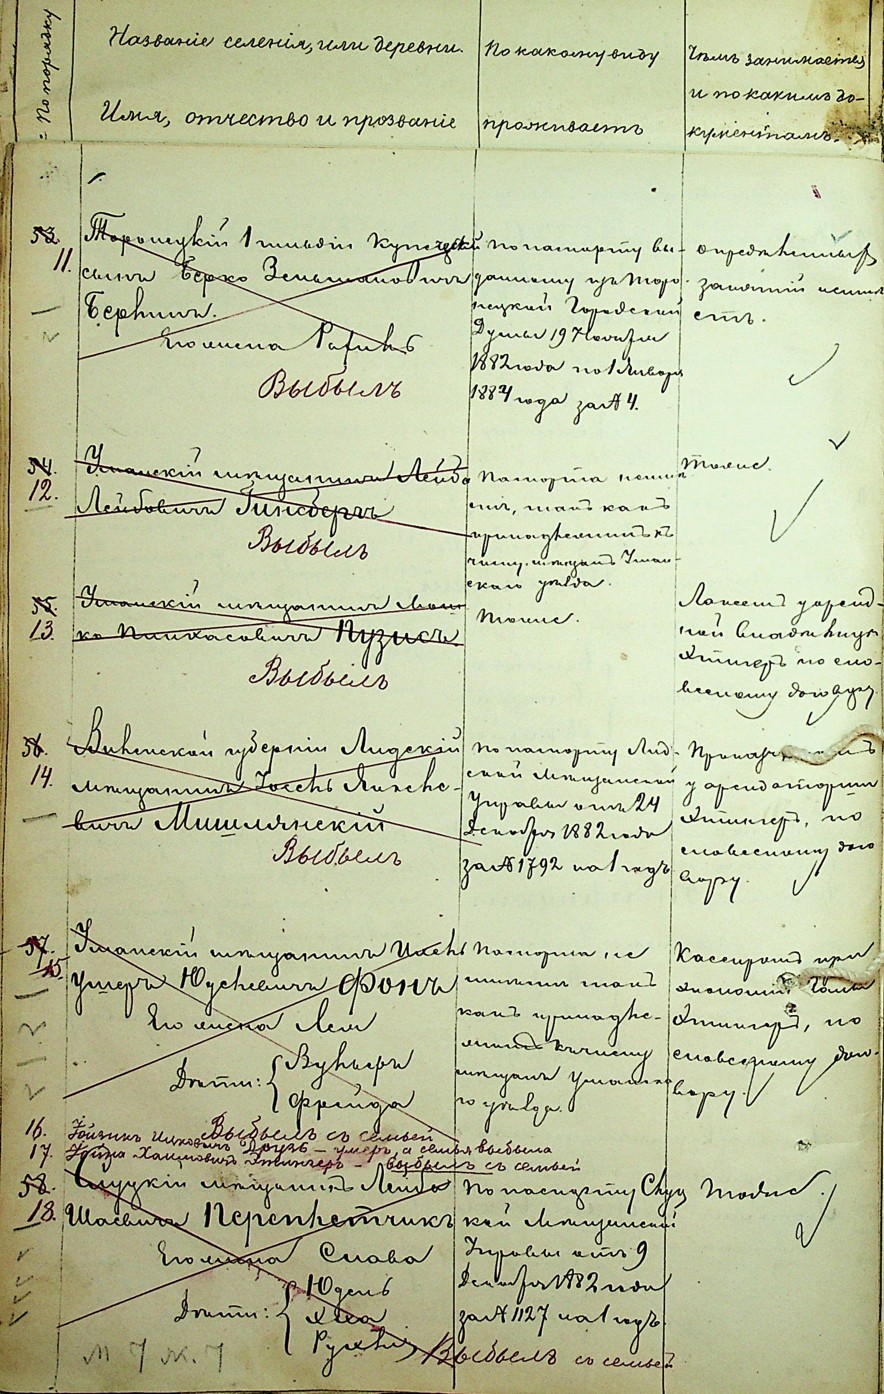 По порядку
Названіе селенія, или деревни.
Имя, отчество и прозваніе
По какому виду
проживаетъ
Чѣмъ занимается
и по какимъ до-
кументамъ.
53.
11.
Торопецкій 1 гильдіи Купеческій
сынъ Берко Зельмановичъ
Беркинъ.
Его жена Рафикъ
Выбылъ
по паспорту вы-
данному изъ Торо-
пецкой Городской
Думы 19 Ноября
1882 года по 1 Января
1884 года за № 4.
опредѣленныхъ
занятій неимѣ-
етъ.
54.
12.
Уманскій мѣщанинъ Лейба
Лейбовичъ Гинсбергъ
Выбылъ
Паспорта неимѣ-
етъ, такъ какъ
принадлежитъ къ
числу мѣщанъ Уман-
скаго уѣзда.
Тоже.
55.
13.
Уманскій мѣщанинъ Мош-
ко Пинхасовичъ Пузисъ
Выбылъ
Тоже.
Лакеемъ у аренд-
ной владѣлицы
Этингеръ по сло-
весному договору.
56.
14.
Виленской губерніи Лидскій
мѣщанинъ Іосель
вичъ Мишлянскій
Выбылъ
По паспорту Лид-
ской Мѣщанской
Управы отъ 24
Декабря 1882 года
за № 1792 на 1 годъ
у арендаторши
Этингеръ, по
словесному дого
вору.
57.
15.
Уманскій мѣщанинъ Іосель
Ушеръ Юдкевичъ Фонъ
Его жена Лея
Дѣти:
Фрейда
Выбылъ съ семьей
Паспорта не
имѣетъ такъ
какъ принадле-
житъ къ числу
мѣщанъ Уманска
го уѣзда.
Кассиромъ при
экономіи
Этингеръ, по
словесному дого-
вору.
16.
17.
– умеръ, а семья выбыла
Хаимовичъ Этингеръ – выбылъ съ семьей
58.
18.
Слуцкій мѣщанинъ Лейба
Шаевичъ Переплетчикъ
Его жена Слава
Дѣти:
Юдель
Хая
Рухля
По паспорту Слуц
кой Мѣщанской
Управы отъ 9
Декабря 1882 года
за № 1127 на 1 годъ.
Выбылъ съ семьей
Тоже.
м 7 ж. 7